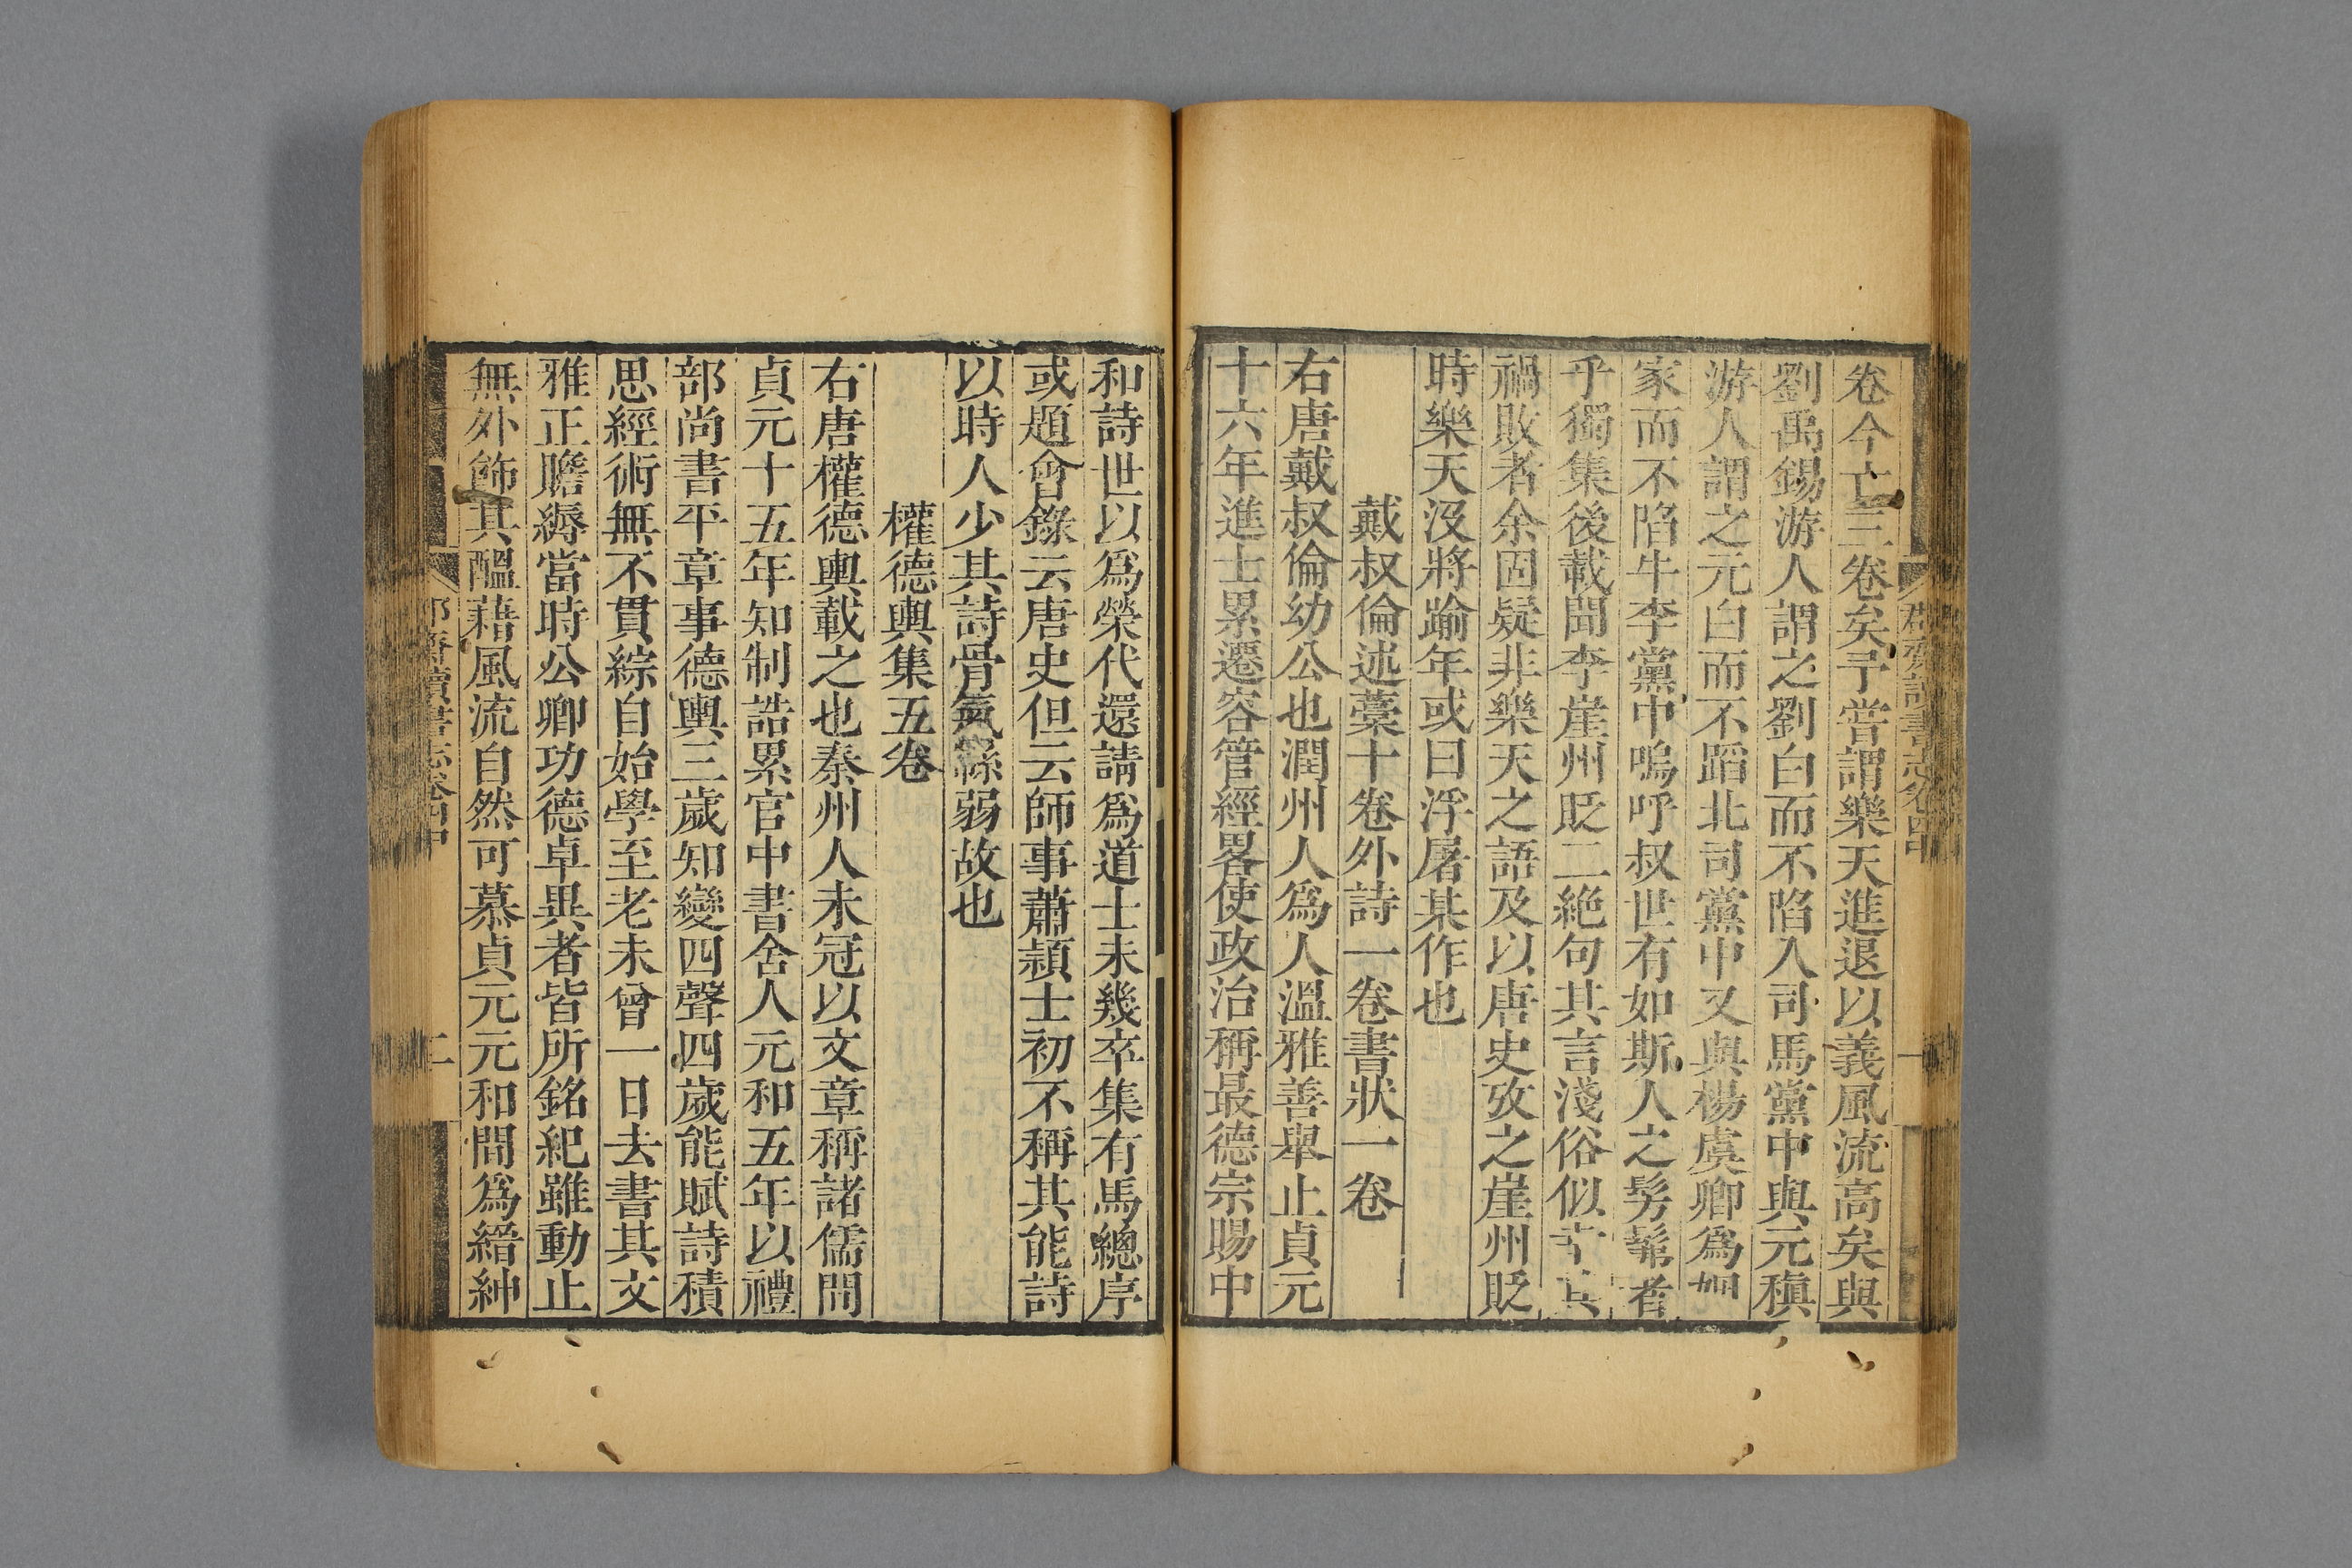 卷今亡三卷矣予嘗謂樂天進退以義風流高矣與
劉禹錫游人謂之劉白而不陷入司馬黨中與元稹
游人謂之元白而不蹈北司黨中又與楊虞卿爲姻
家而不陷牛李黨中嗚呼叔世有如斯人之髣髴者
乎獨集後載聞李崖州貶二絶句其言淺俗似
禍敗者余固疑非樂天之語及以唐史攷之崖州貶
時樂天沒將踰年或曰浮屠某作也
戴叔倫述藁十卷外詩一卷書狀一卷
右唐戴叔倫幼公也潤州人爲人溫雅善舉止貞元
十六年進士累遷容管經畧使政治稱最德宗賜中
和詩世以爲榮代還請爲道士未幾卒集有馬總序
或題會錄云唐史但云師事蕭頴士初不稱其能詩
以時人少其詩骨氣緜弱故也
權德輿集五卷
右唐權德輿載之也秦州人未冠以文章稱諸儒間
貞元十五年知制誥累官中書舍人元和五年以禮
部尚書平章事德輿三歲知變四聲四歲能賦詩積
思經術無不貫綜自始學至老未曾一日去書其文
雅正贍縟當時公卿功德卓異者皆所銘紀雖動止
無外飾其醞藉風流自然可慕貞元元和間爲縉紳